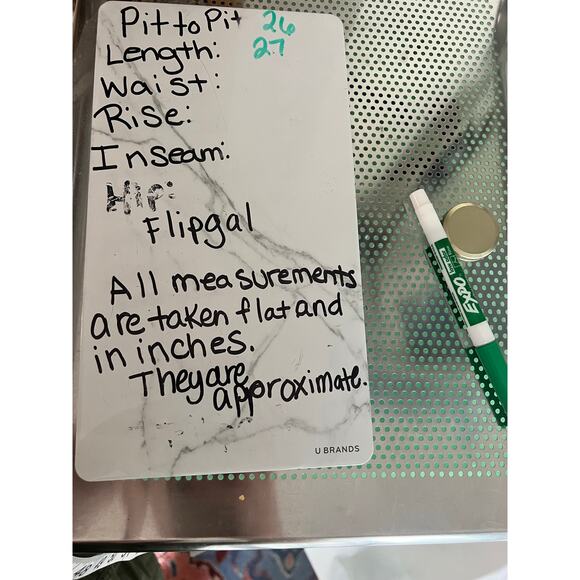 Pit to Pit 26
Length: 27
Waist:
Rise:
Inseam:
Hip:
Flipgal
All measurements
are taken flat and
in inches.
They are
approximate.
U BRANDS
EXPO